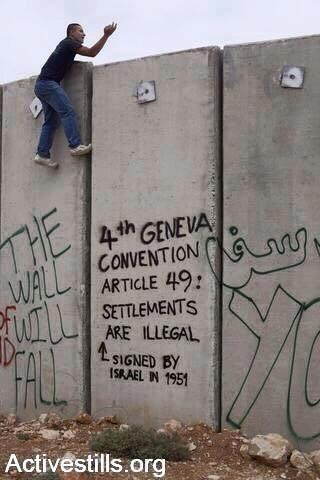 4th GENEVA
CONVENTION
ARTICLE 49:
SETTLEMENTS
ARE ILLEGAL
↑ SIGNED BY
ISRAEL IN 1951
THE
WALL
WILL
FALL
OF
Activestills.org